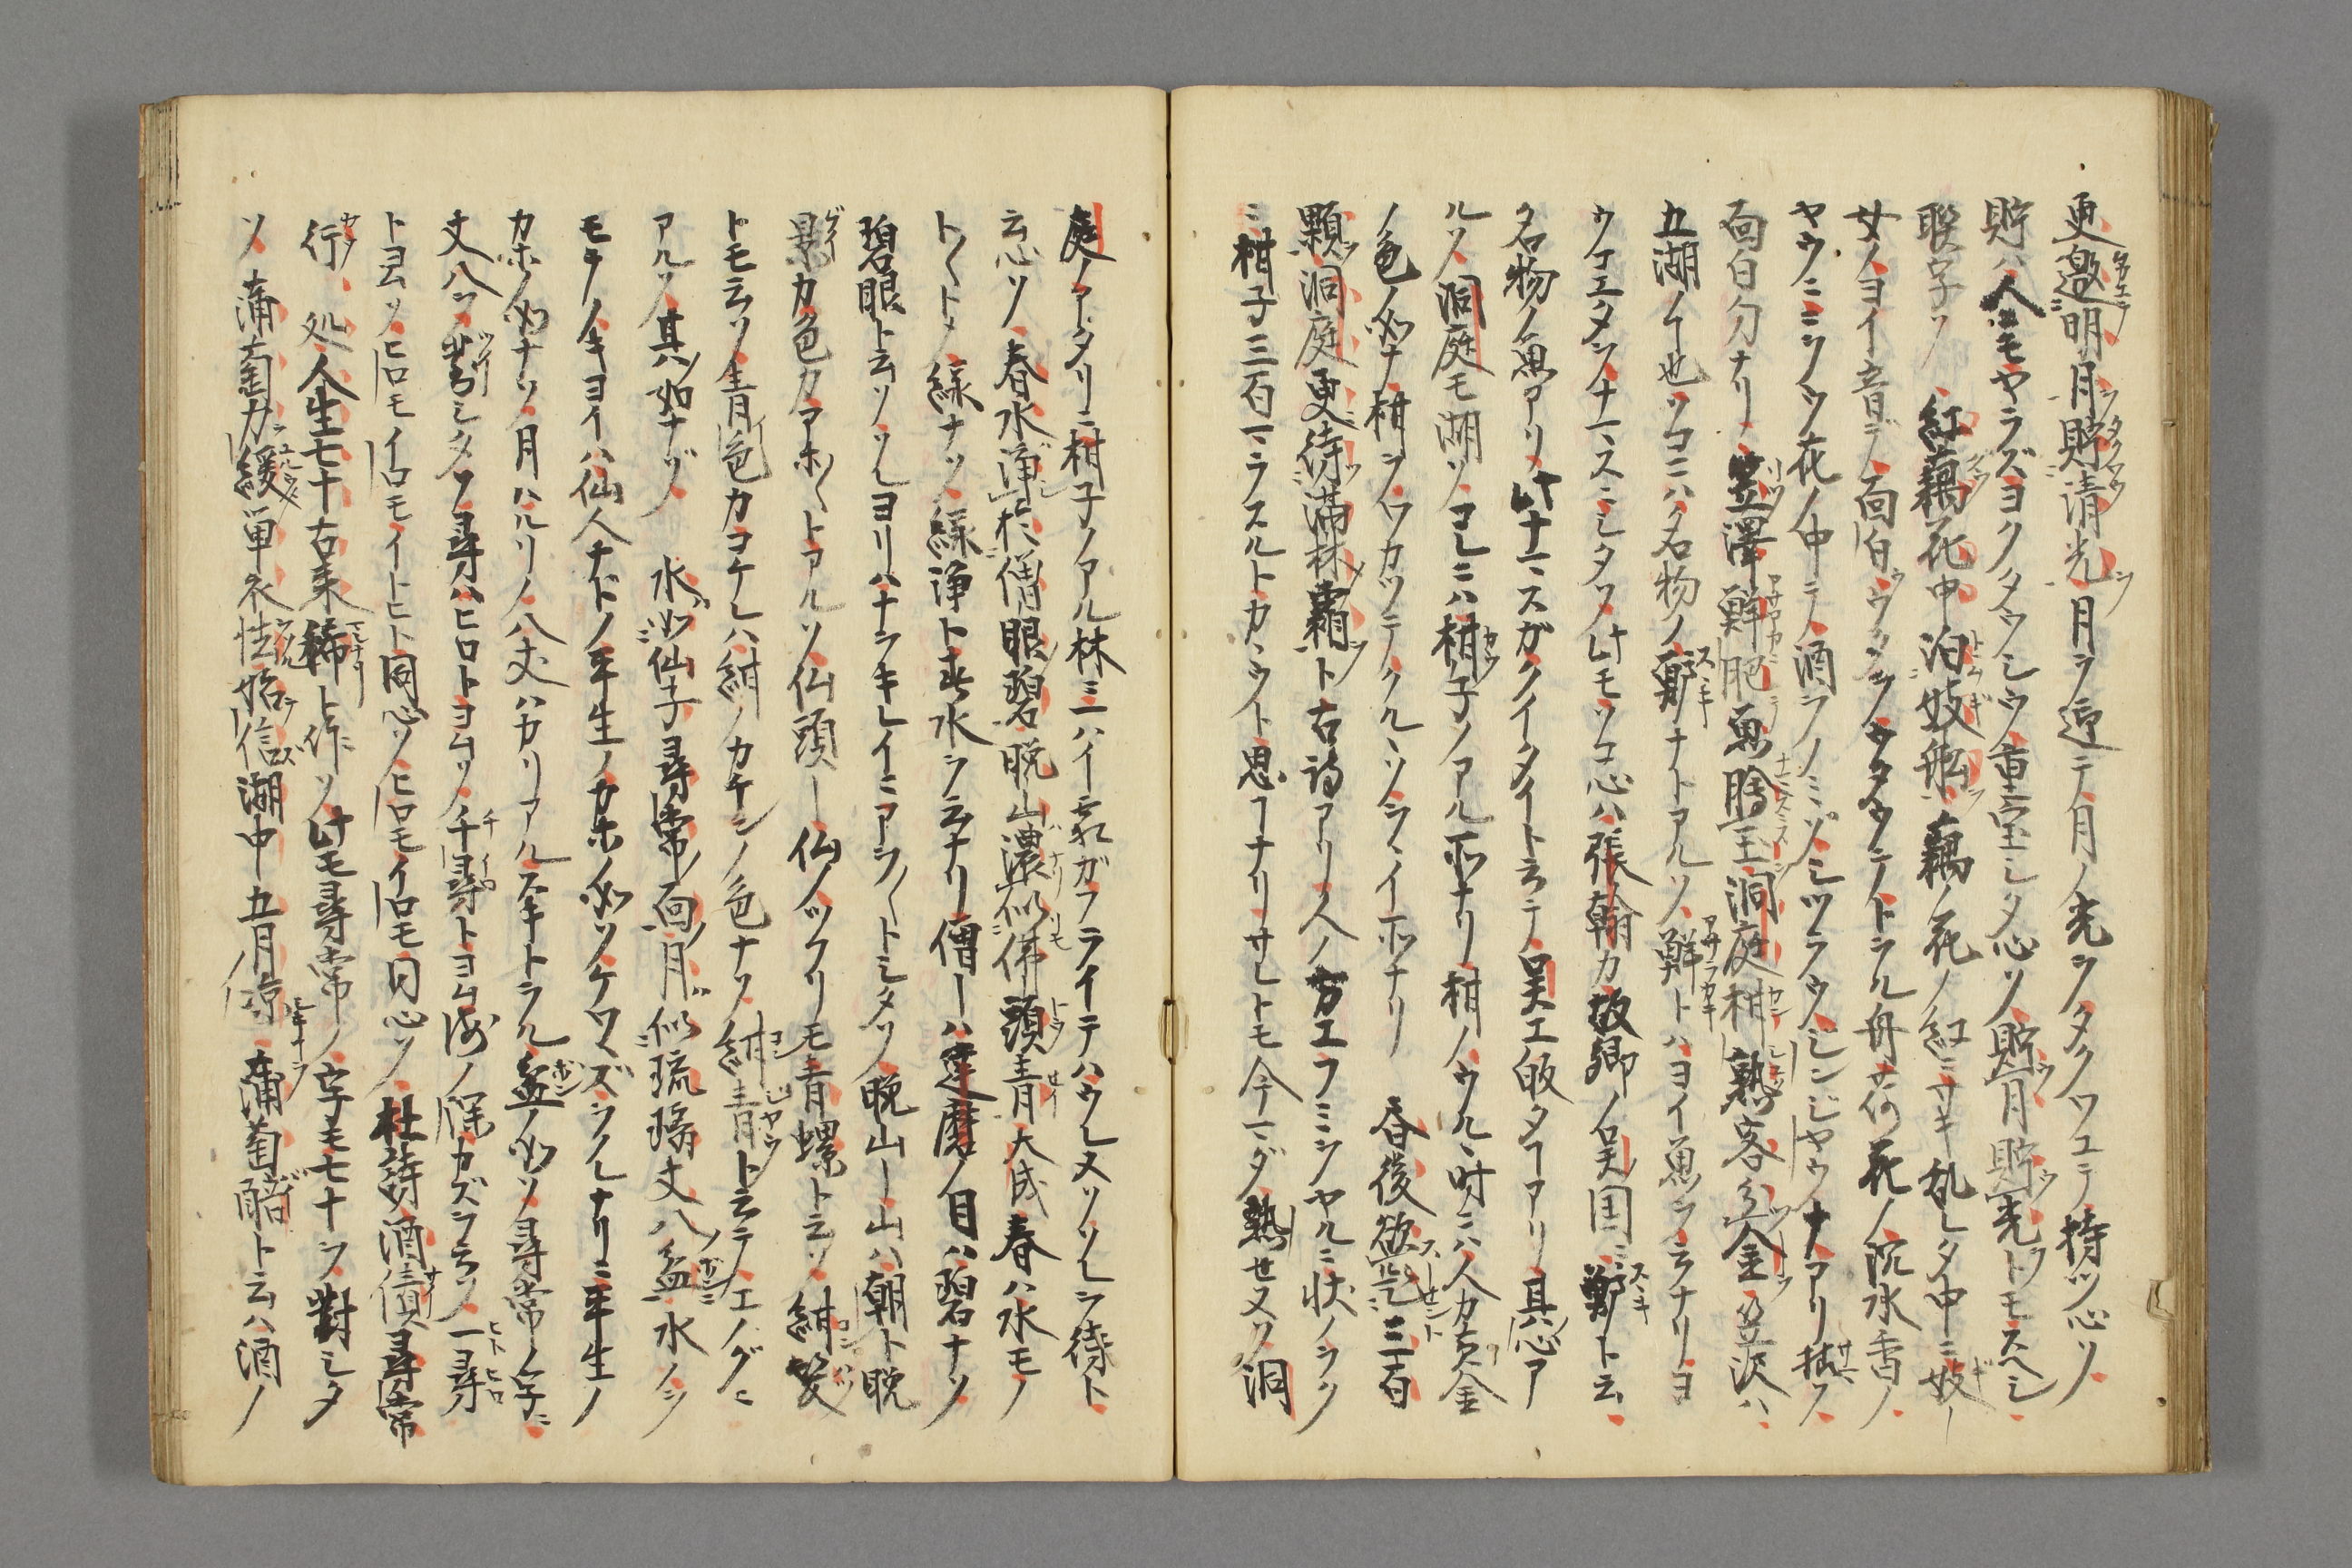 更邀明月貯清光月ヲ迎テ月ノ光ヲタクワエテ持ツ心ソ
貯ハ人モヤラズヨクタクワシウ重宝シタ心ソ貯月貯光トモスヘシ
聯字ソ 紅藕花中泊妓船藕ノ花ノ紅ニサキ乱レタ中ニ妓ー
女ノヨイ音デ面白ウウタヲウタウテトヲル舟荷花ノ沉水香ノ
ヤウニニヲウ花ノ中テ酒ヲノミツシツラウシンジヤウナアリ様ソ
面白匂ナリ 笠澤鮮肥魚膾玉洞庭柑熟客分金笠沢ハ
五湖ノ一也ソコニハ名物ノ鄭ナトアルソ鮮トハヨイ魚ヲ云ナリヨ
ウコエタヲナマスニシタソ此モソコ心ハ張翰カ故郷ノ呉国ニ鄭ト云
名物ノ魚アリ此ナマスガクイタイト云テ呉エ皈タコアリ其心ア
ルソ洞庭モ湖ソコレニハ柑子ノアル所ナリ柑ノウルヽ時ニハ人カ黄金
ノ色ノ如ナ柑ヲワカツテクルヽソヲヽイ所ナリ 春後欲乞三百
顆洞庭更待満林霜ト古詩アリ人ノ方エフミヲヤルニ状ノヲク
ニ柑子三百マヲスルトカヽウト思フナリサレトモ今マダ熟せヌソ洞
庭ノアタリニ柑子ノアル林ニハイマ霜ガフライテハウレヌソソレヲ待ト
云心ソ 春水浄於僧眼碧晩山濃似佛頭青大成春ハ水モノ
トくトメ緑ナソ緑浄ト春水ヲ云ナリ僧ーハ達磨ノ目ハ碧ナソ
碧眼ト云ソソレヨリハナヲキレイニアヲくトシタソ晩山ー山ハ朝ト晩
景カ色カアホくトアルソ仏頭ー仏ノツクリモ青螺ト云ソ紺髪
トモ云ソ青色カコケレハ紺ノカチンノ色ナソ紺青ト云テエノグニ
アルソ其如ナゾ 水如仙子尋常面月似琉璃丈八盆水ノヲ
モテノキヨイハ仙人ナドノ平生ノカホノ如ソケワズラウレナリニ平生ノ
カホノ如ナソ月ハルリノ八丈ハカリアルヌキトヲル盆ノ如ソ尋常ノ字ニ
丈八ヲ對シタソ尋ハヒロトヨムソ千尋トヨム海ノ深カズヲ云ソ一尋
トヨムソヒロモイロモイトヒト同心ソヒロモイロモ同心ソ 杜詩酒債尋常
行処人生七十古来稀ト作ソ此モ尋常ノ字モ七十ヲ對シタ
ソ 蒲萄力緩単衣怯始信湖中五月凉蒲萄醅ト云ハ酒ノ